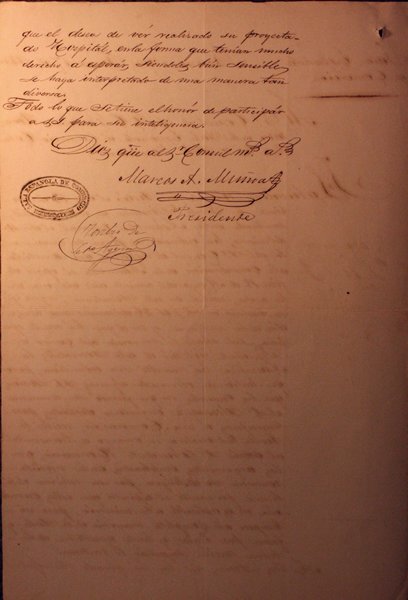 que el deseo de vér realizado su proyecta-
do Hospital, en la forma que tenian mucho
derecho á esperár, siendoles bien sencible
se haya interpretado de una manera tan
diversa.
Todo lo que se tiene el honór de participár
a para su inteligencia.
Dios que al Sr Consul ms as
Marcos A.
Presidente
ESPAÑOLA DE